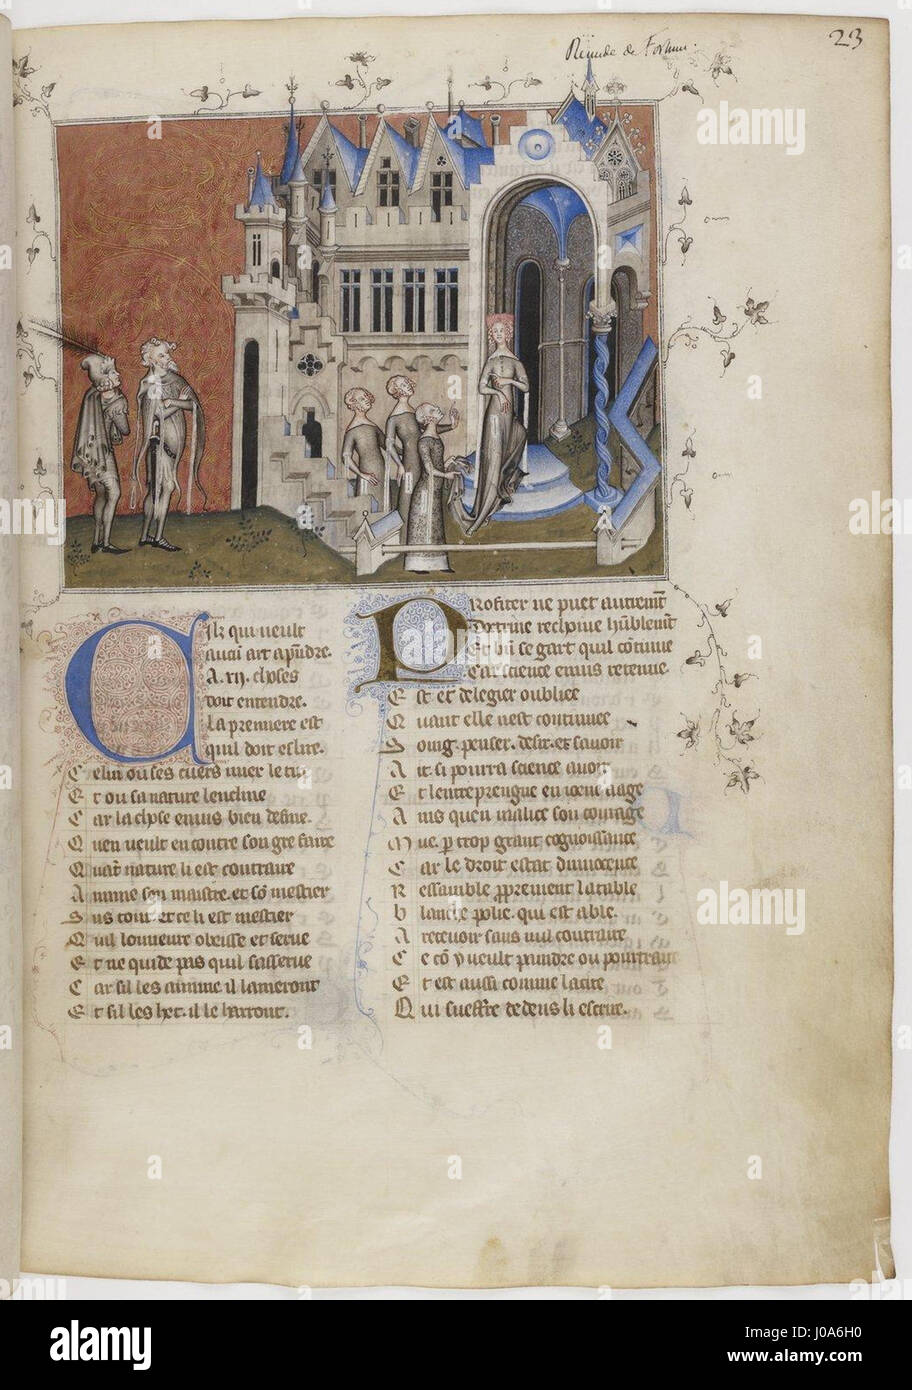 Remede de Fortune.
23
Cilz qui veult
aucun art aprendre.
A .xij. choses
doit entendre.
La premiere est
quil doit eslire.
Celui ou ses cuers miex le tire
Et ou sa nature lencline
Car la chose envis bien define.
Quen veult encontre son gre faire
Quant nature li est contraire
Aimme son maistre et son mestier
Sus tout et ce li est mestier
Quil lonneure obeisse et serve
Et ne quide pas quil sasserve
Car sil les aimme il lameront
Et sil les het. il le harront.
Profiter ne puet autrement
Doctrine recoive humblement
Et bien se gart quil continue
Car science envis retenue
Est et de legier oubliee
Quant elle nest continuee
Soing. penser. desir. et savoir
Ait si pourra science avoir
Et lentreprengne en joenne aage
Ains quen malice son courage
Mue. par trop grant cognoissance
Car le droit estat dinnocence
Ressamble proprement la table
Blanche polie. qui est able.
A recevoir sans nul contraire
Ce con y veult paindre ou pourtraire
Et est aussi comme la cire
Qui sueffre dedens li escrire.
alamy
Image ID: J0A6H0
www.alamy.com